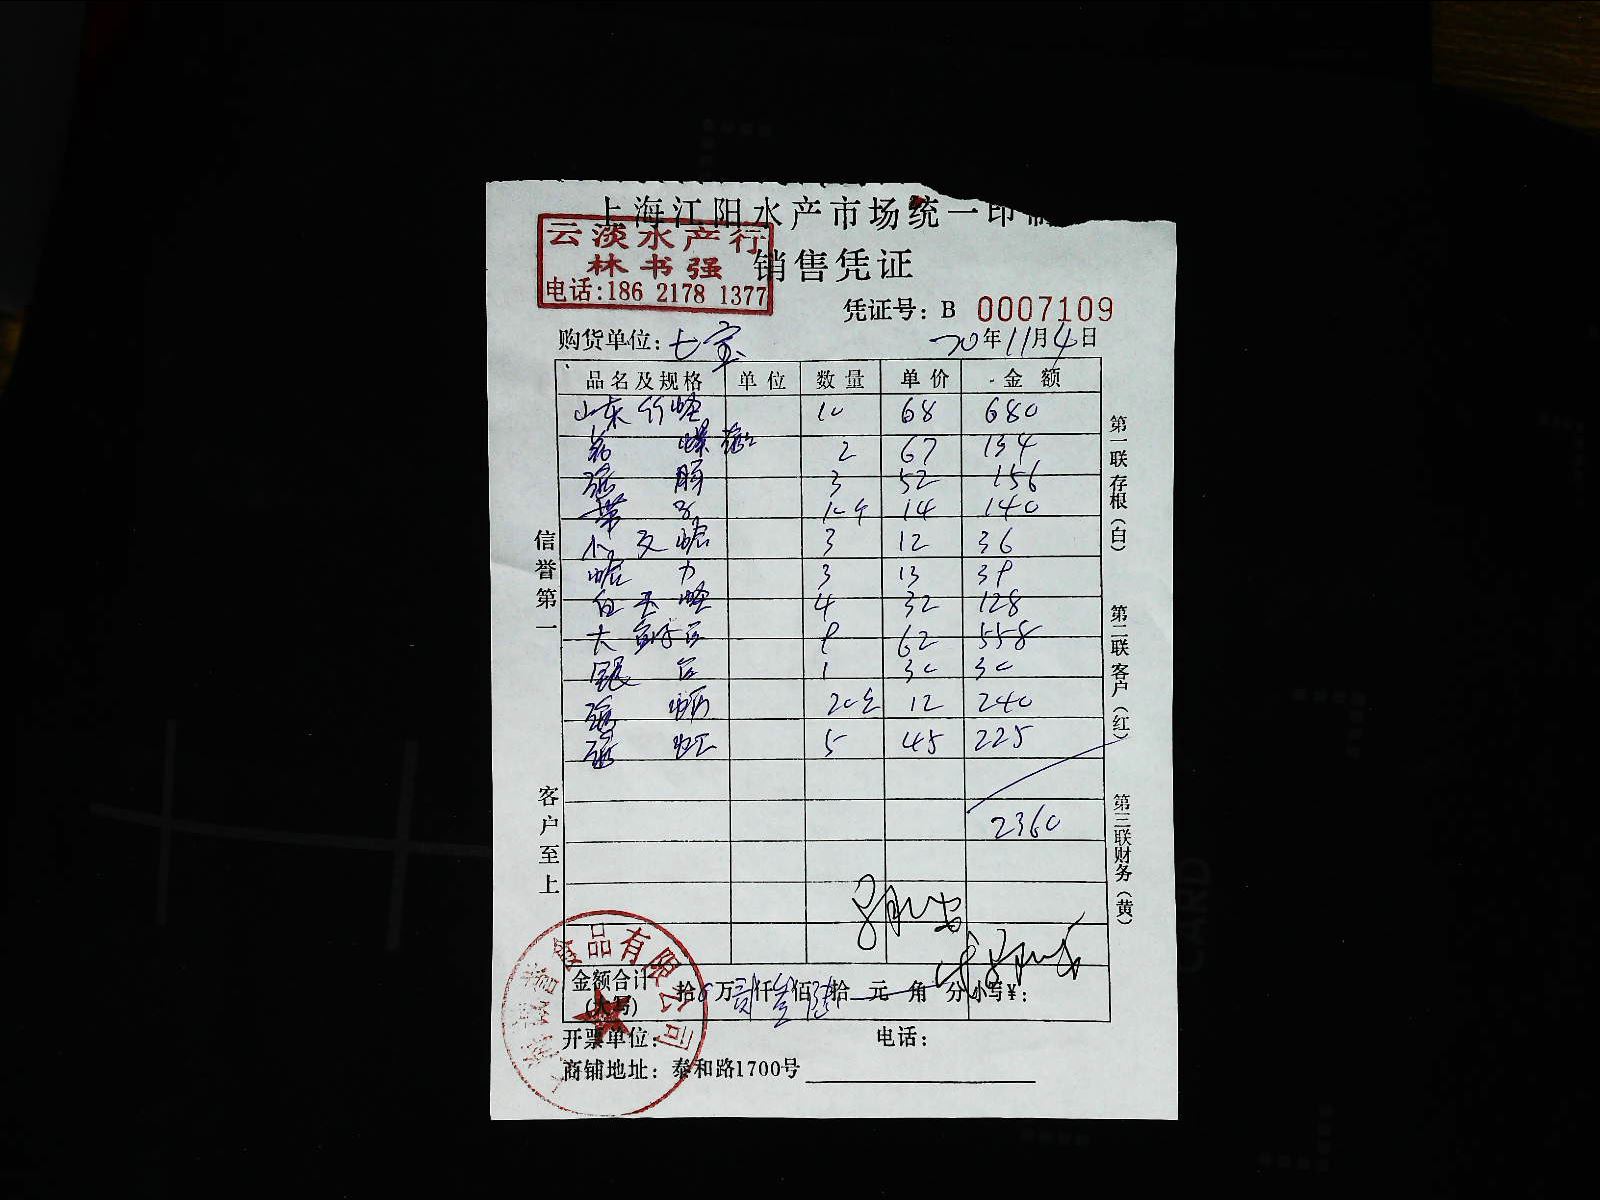 上海江阳水产市场统一印制
云淡水产行
林书强
电话:186 2178 1377
销售凭证
凭证号: B 0007109
购货单位: 七宝 20年11月4日
品名及规格 单位 数量 单价 金额
山东竹蛏 10 68 680
花螺 2 67 134
3 52 156
带子 10个 14 140
小文蛤 3 12 36
蛤力 3 13 39
白玉蛏 4 32 128
大 9 62 558
银 1 30 30
20 12 240
虹 5 45 225
2360
金额合计(大写) 拾 万贰仟 佰 拾 元 角 分 小写¥:
开票单位: 电话:
商铺地址: 泰和路1700号
信誉第一
客户至上
第一联存根(白)
第二联客户(红)
第三联财务(黄)
食品有限公司